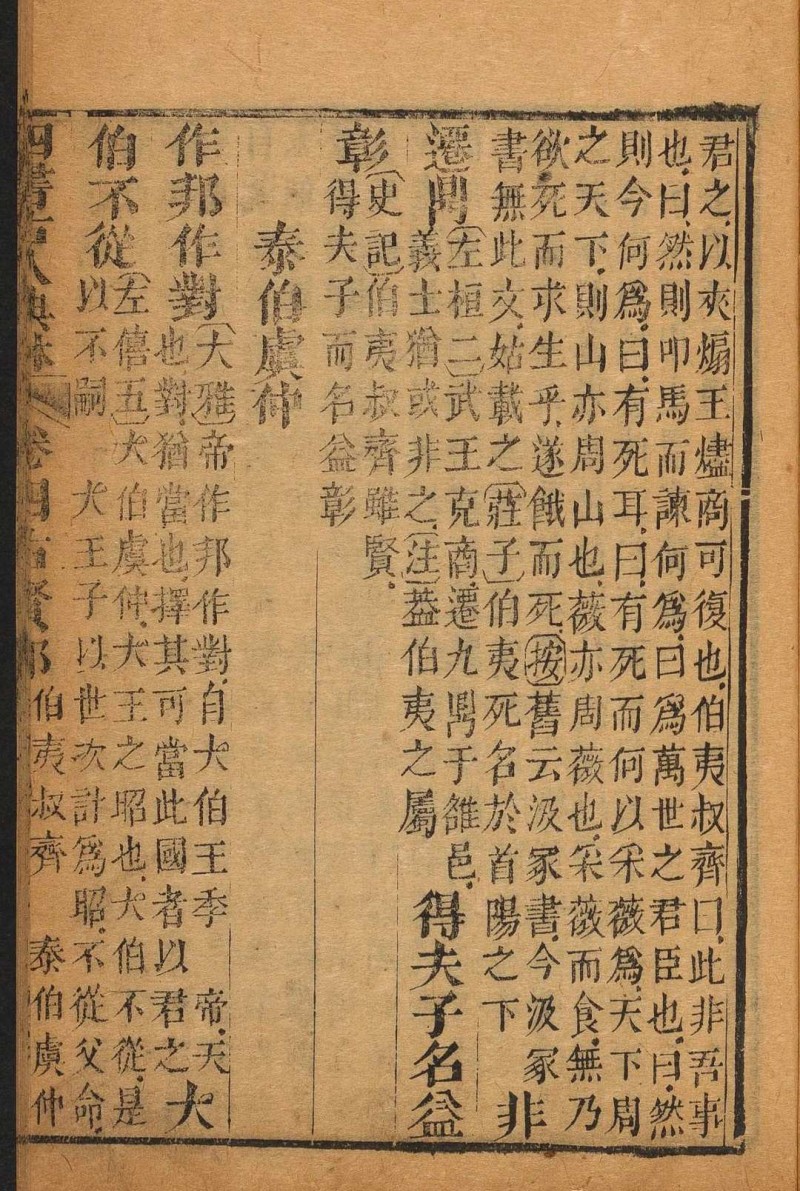 君之以夾煽王燼商可復也伯夷叔齊曰此非吾事
也曰然則叩馬而諫何爲曰爲萬世之君臣也曰然
則今何爲曰有死耳曰有死而何以采薇爲天下周
之天下則山亦周山也薇亦周薇也采薇而食無乃
欲死而求生乎遂餓而死按舊云汲冢書今汲冢
書無此文姑載之莊子伯夷死名於首陽之下
非
遷鼎
左桓二武王克商遷九鼎于雒邑
義士猶或非之注葢伯夷之屬
得夫子名益
彰
史記伯夷叔齊雖賢
得夫子而名益彰
泰伯虞仲
作邦作對
大雅帝作邦作對自大伯王季 帝天
也對猶當也擇其可當此國者以君之
大
伯不從
左僖五大伯虞仲大王之昭也大伯不從是
以不嗣 大王子以世次計爲昭不從父命
四書古人典林 卷四古賢部 伯夷叔齊 泰伯虞仲